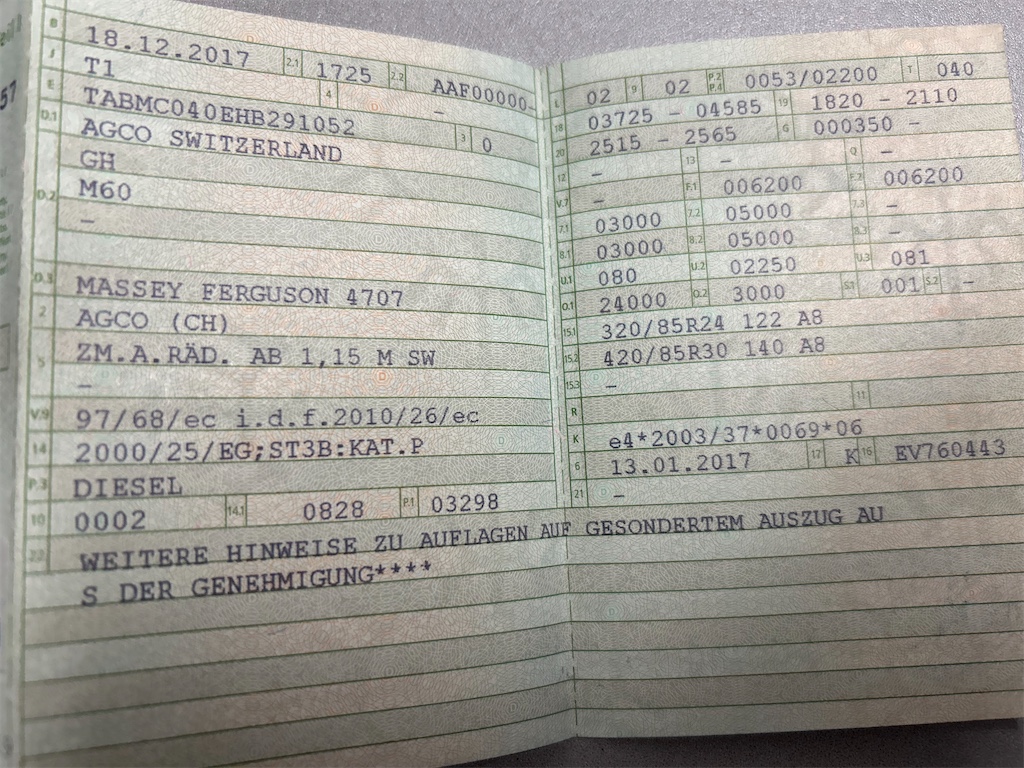 B 18.12.2017 2.1 1725 2.2 AAF00000-
J T1 4 –
E TABMC040EHB291052 3 0
D.1 AGCO SWITZERLAND
GH
D.2 M60
–
D.3 MASSEY FERGUSON 4707
2 AGCO (CH)
5 ZM.A.RÄD. AB 1,15 M SW
–
V.9 97/68/ec i.d.f.2010/26/ec
14 2000/25/EG;ST3B:KAT.P
P.3 DIESEL
10 0002 14.1 0828 P.1 03298
22 WEITERE HINWEISE ZU AUFLAGEN AUF GESONDERTEM AUSZUG AU
S DER GENEHMIGUNG****
L 02 9 02 P.2 P.4 0053/02200 T 040
18 03725 – 04585 19 1820 – 2110
20 2515 – 2565 G 000350 –
12 – 13 – Q –
V.7 – F.1 006200 F.2 006200
7.1 03000 7.2 05000 7.3 –
8.1 03000 8.2 05000 8.3 –
U.1 080 U.2 02250 U.3 081
O.1 24000 O.2 3000 S.1 001 S.2 –
15.1 320/85R24 122 A8
15.2 420/85R30 140 A8
15.3 –
R 11
K e4*2003/37*0069*06
6 13.01.2017 17 K 16 EV760443
21 –
57